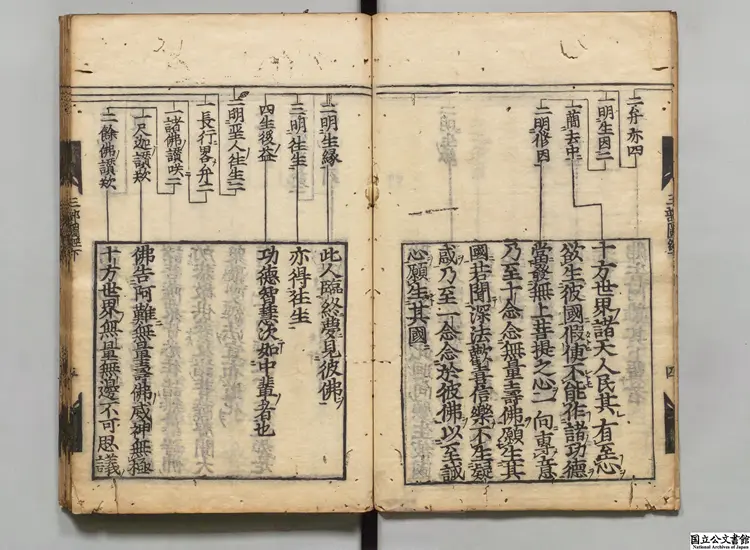 二弁亦四
一明生因二
一簡去中
二明修因
十方世界諸天人民其有至心
欲生彼國假使不能作諸功德
當發無上菩提之心一向專意
乃至十念念無量壽佛願生其
國若聞深法歡喜信樂不生疑
惑乃至一念念於彼佛以至誠
心願生其國
四
二明生縁
三明往生
四生後益
二明聖人往生二
一長行畧弁二
一諸佛讃咲二
一尺迦讃欤
二餘佛讃欤
此人臨終夢見彼佛
亦得往生
功德智慧次如中輩者也
佛告阿難無量壽佛威神無極
十方世界無量無邊不可思議
三部圖經下
国立公文書館
National Archives of Japan